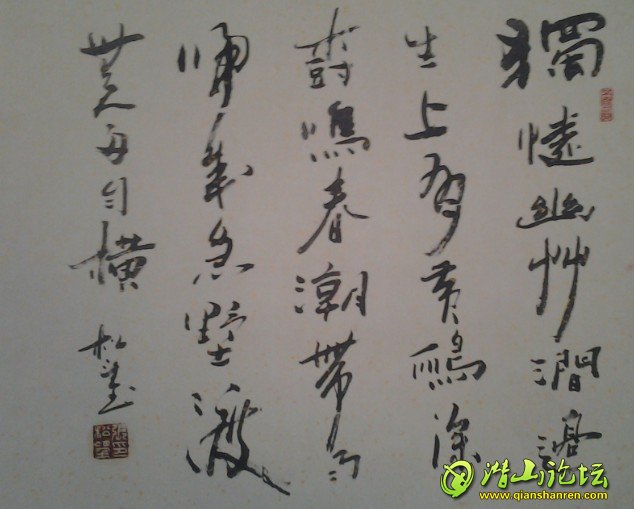 獨憐幽艸澗邊
生上有黄鸝深
樹鳴春潮帶雨
晚來急野渡
無人舟自橫
松
潜山论坛
www.qianshanren.com